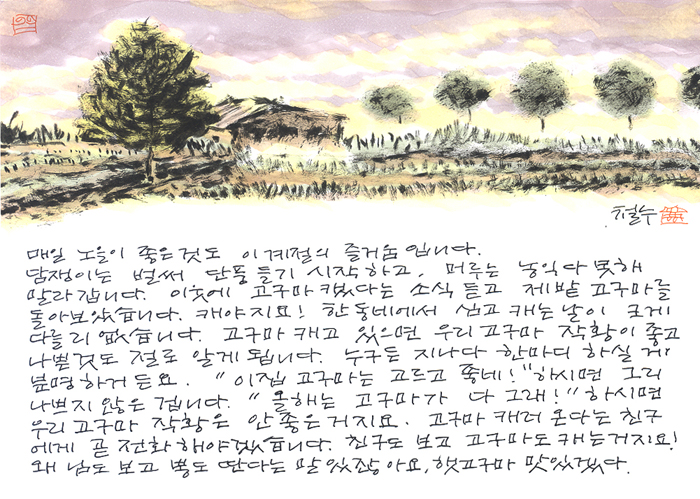 철수
매일 노을이 좋은것도 이 계절의 즐거움입니다.
담쟁이는 벌써 단풍들기 시작하고, 머루는 농익다 못해
말라 갑니다. 이웃에 고구마 캤다는 소식 듣고 제밭 고구마를
돌아보았습니다. 캐야지요! 한 동네에서 심고 캐는 날이 크게
다를리 없습니다. 고구마 캐고 있으면 우리 고구마 작황이 좋고
나쁜것도 절로 알게 됩니다. 누구든 지나다 한마디 하실게
분명하거든요. "이집 고구마는 고르고 좋네!" 하시면 그리
나쁘지 않은 겁니다. "올해는 고구마가 다 그래!" 하시면
우리 고구마 작황은 안 좋은거지요. 고구마 캐러 온다는 친구
에게 곧 전화해야겠습니다. 친구도 보고 고구마도 캐는거지요!
왜 님도 보고 뽕도 딴다는 말 있잖아요, 햇고구마 맛있겠다.